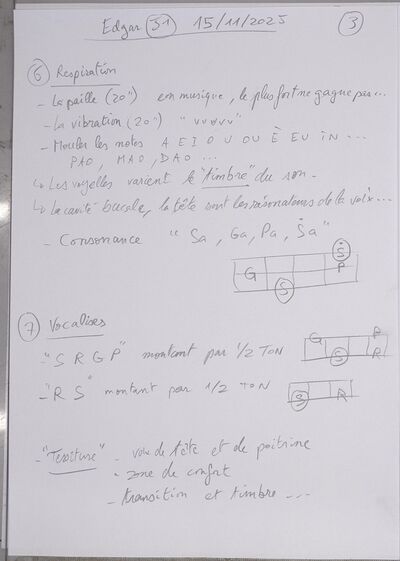 Edgar 31 15/11/2025 3
6 Respiration
- La paille (20") en musique, le plus fort ne gagne pas...
- La vibration (20") "vvvvv"
- Mouler les notes A E I O U OU È EU IN ...
PAO, MAO, DAO ...
↳ Les voyelles varient le "timbre" du son.
↳ La cavité buccale, la tête sont les résonateurs de la voix...
- Consonance "Sa, Ga, Pa, Ṡa"
Ṡ
G P
S
7 Vocalises
- "S R G P" montant par 1/2 TON
G P
S R
- "R S" montant par 1/2 TON
S R
- "Tessiture" - voix de tête et de poitrine
- zone de confort
- transition et timbre ...